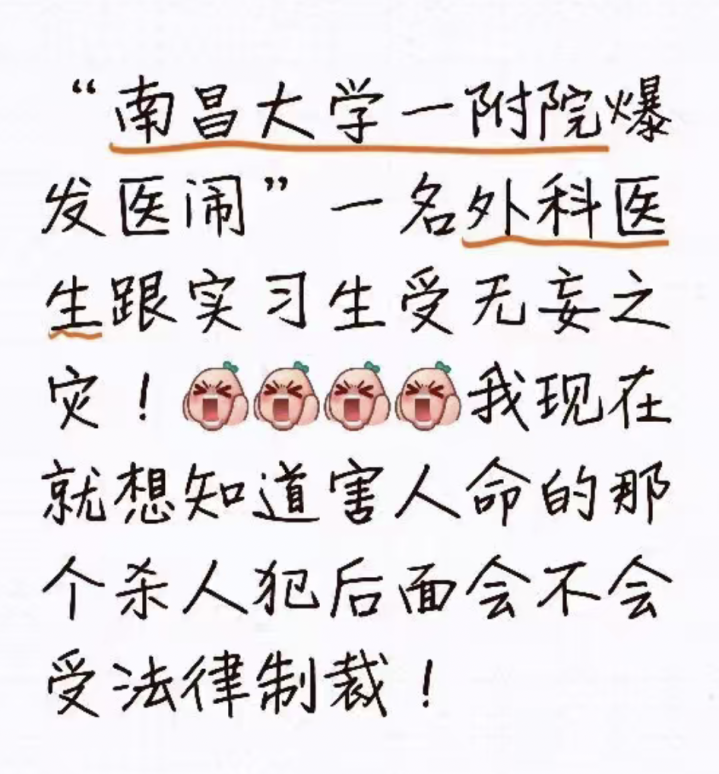 “南昌大学一附院爆
发医闹”一名外科医
生跟实习生受无妄之
灾！我现在
就想知道害人命的那
个杀人犯后面会不会
受法律制裁！